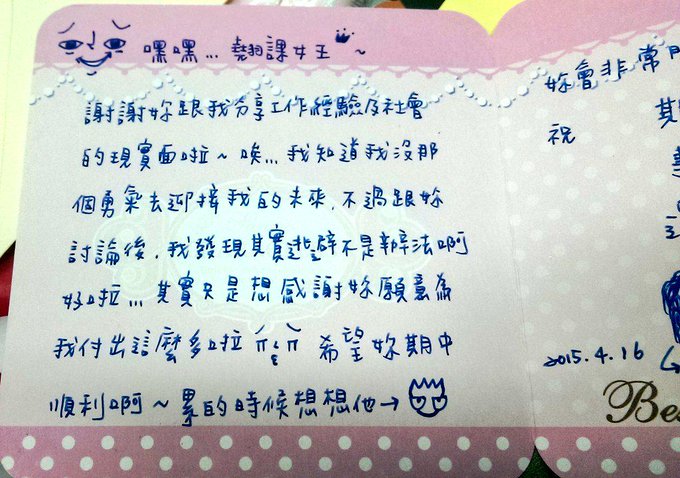 嘿嘿... 翹課女王~
謝謝妳跟我分享工作經驗及社會
的現實面啦~ 唉... 我知道我沒那
個勇氣去迎接我的未來, 不過跟妳
討論後, 我發現其實逃避不是辦法啊
好啦... 其實只是想感謝妳願意為
我付出這麼多啦 希望妳期中
順利啊~ 累的時候想想他→
妳會非常
祝
2015.4.16
Bes